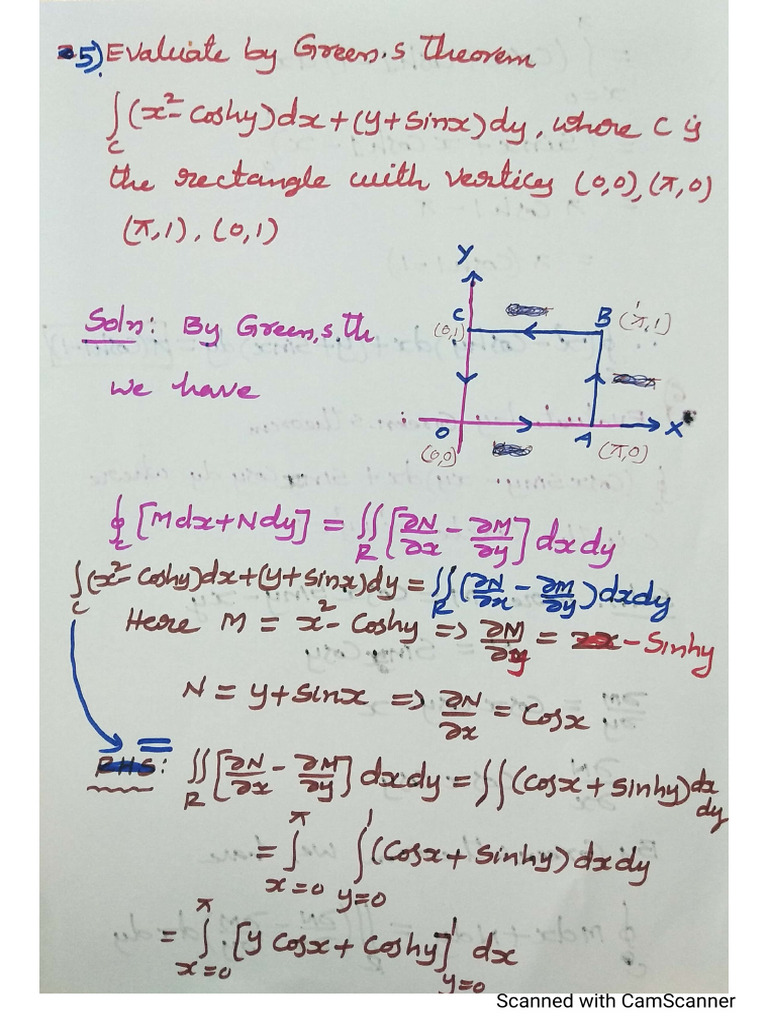 5) Evaluate by Green,s Theorem
∫_C (x² - coshy) dx + (y + sinx) dy, where C is
the rectangle with vertices (0,0), (π,0)
(π,1), (0,1)
Soln: By Green,s th
we have
Y
C (0,1)
B (π,1)
O (0,0)
A (π,0)
X
∮_C [Mdx + Ndy] = ∬_R [∂N/∂x - ∂M/∂y] dxdy
∫_C (x² - coshy) dx + (y + sinx) dy = ∬_R (∂N/∂x - ∂M/∂y) dxdy
Here M = x² - Coshy => ∂M/∂y = - Sinhy
N = y + sinx => ∂N/∂x = Cosx
= RHS: ∬_R [∂N/∂x - ∂M/∂y] dxdy = ∫∫ (Cosx + sinhy) dx dy
= ∫_{x=0}^{π} ∫_{y=0}^{1} (Cosx + Sinhy) dxdy
= ∫_{x=0}^{π} [y Cosx + Coshy]_{y=0}^{1} dx
Scanned with CamScanner